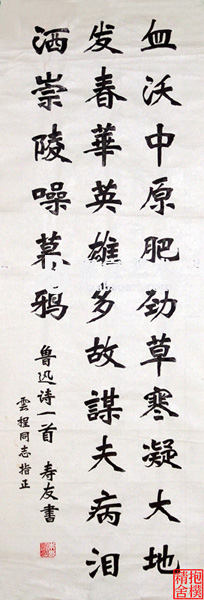 血沃中原肥劲草寒凝大地
发春華英雄多故謀夫病泪
洒崇陵噪暮鸦
鲁迅诗一首 寿友書
雲程同志指正
抱樸精舍